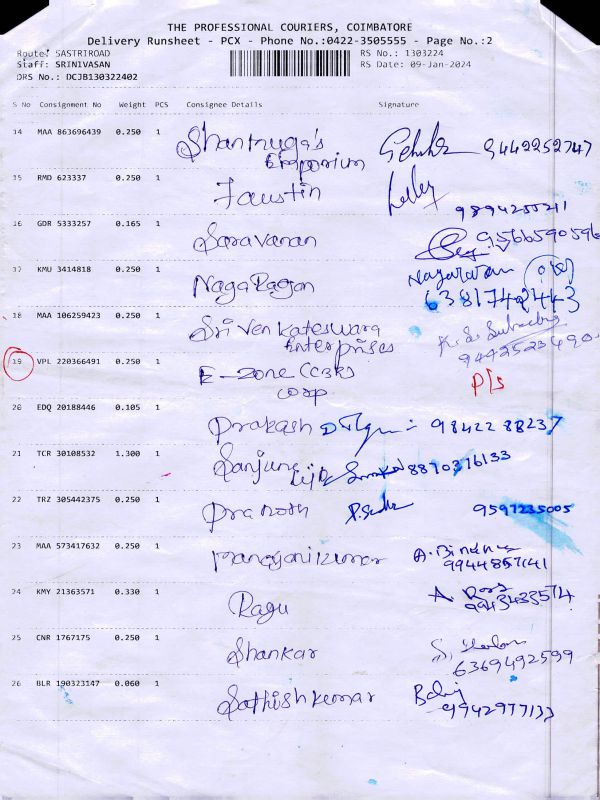 THE PROFESSIONAL COURIERS, COIMBATORE
Delivery Runsheet - PCX - Phone No.:0422-3505555 - Page No.:2
Route: SASTRIROAD RS No.: 1303224
Staff: SRINIVASAN RS Date: 09-Jan-2024
DRS No.: DCJB130322402
S No Consignment No Weight PCS Consignee Details Signature
14 MAA 863696439 0.250 1 Shanmuga's 9442252747
Emporium
15 RMD 623337 0.250 1 Faustin
9894255211
16 GDR 5333257 0.165 1 Saravanan 9566590596
17 KMU 3414818 0.250 1 NagaRagan Nagarajan
6381742443
18 MAA 106259423 0.250 1 Sri Venkateswara
Enterprises
19 VPL 220366491 0.250 1 E-Zone
corp P/s
20 EDQ 20188446 0.105 1 Prakash 98422 88237
21 TCR 30108532 1.300 1 8870376133
22 TRZ 305442375 0.250 1 9597235005
23 MAA 573417632 0.250 1
9944857141
24 KMY 21363571 0.330 1 Ragu
25 CNR 1767175 0.250 1 Shankar
6369492599
26 BLR 190323147 0.060 1 Sathishkumar
9942977133